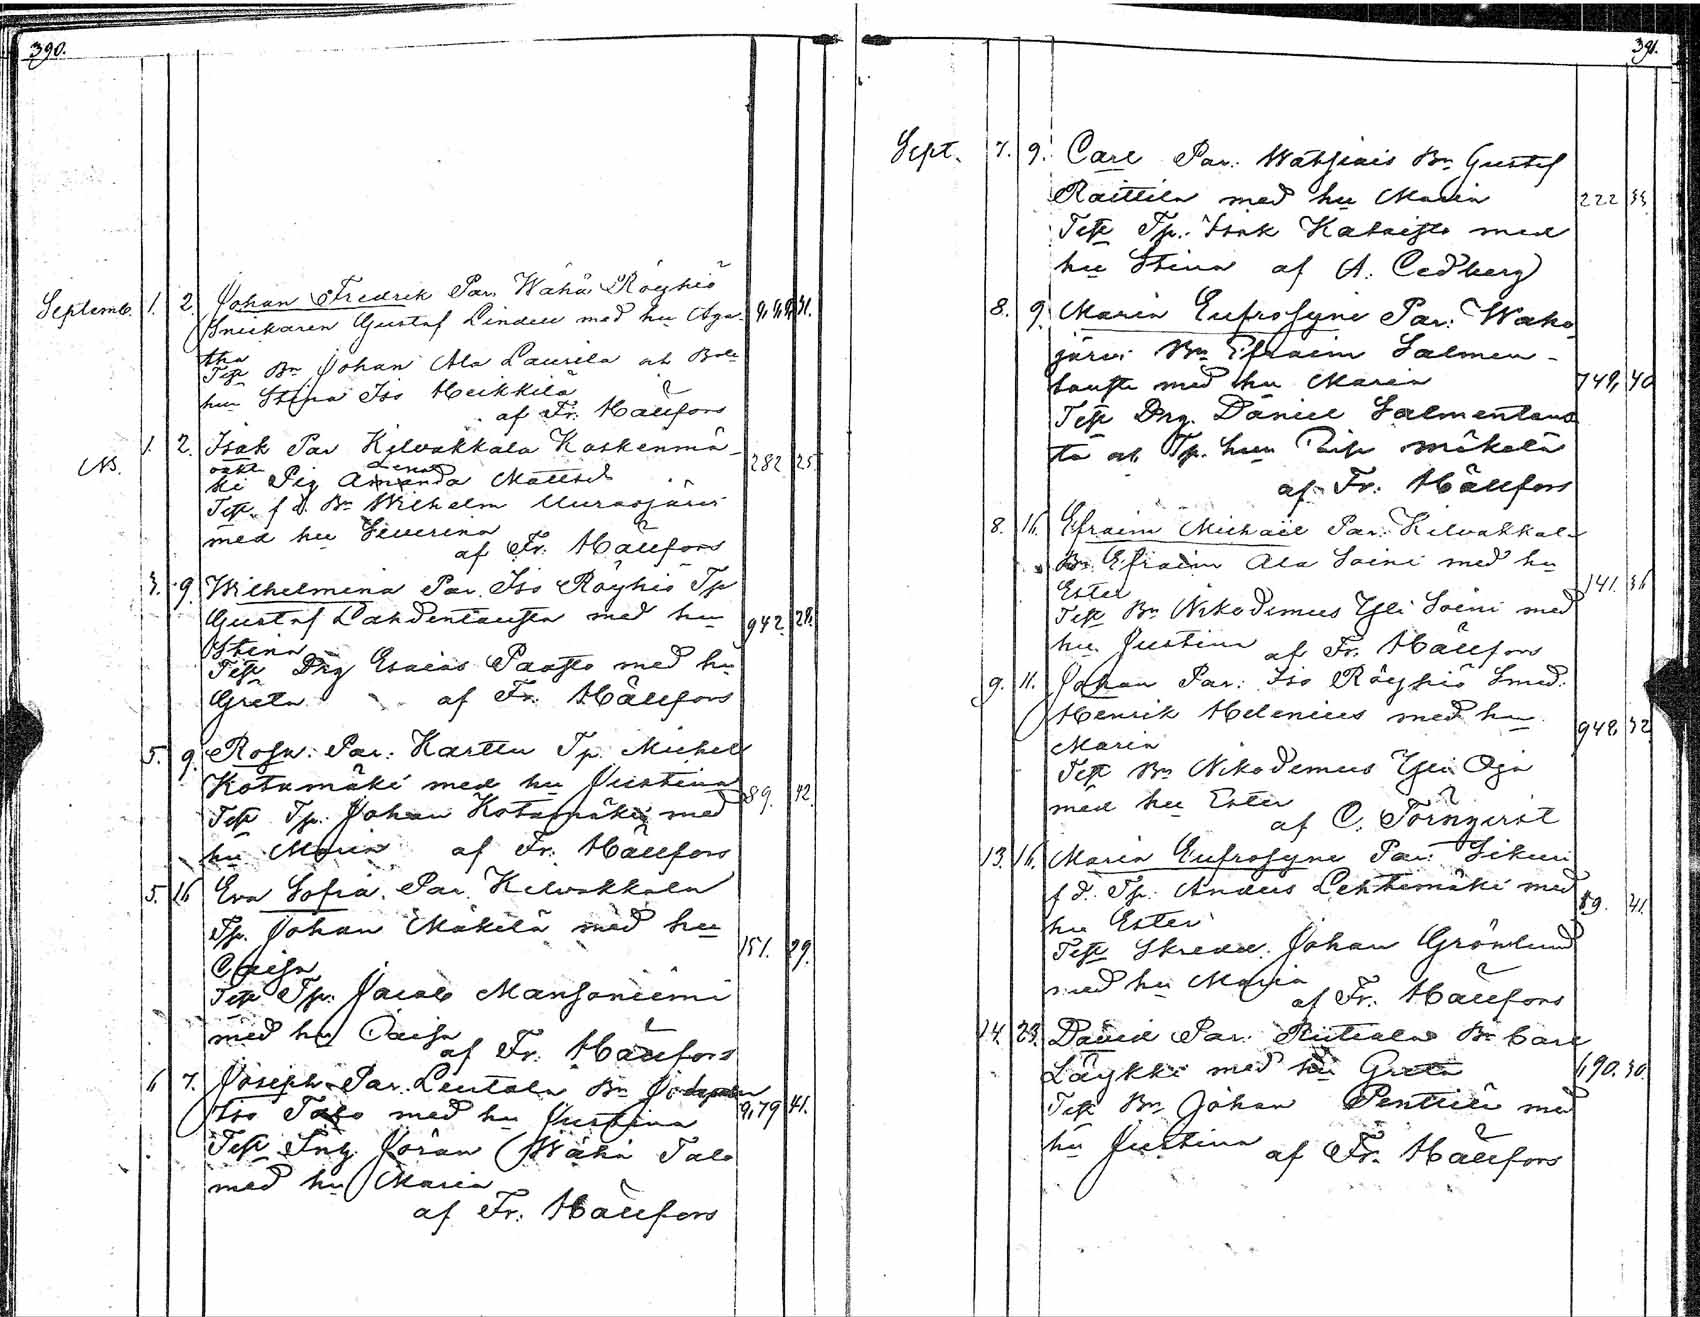 390.
Septemb. 1. 2. Johan Fredrik Par. Wähä Röyhiö
Snickaren Gustaf Lindell med hu Aga
tha
Test Bn Johan Ala Laurila at Bde
hu Stina Iso Heikkilä
af Fr. Hällfors
1. 2. Isak Par Kilvakkala Koskenmä
NB. 282 25
oäkt Lena
ki Pig Amanda Mattsd
Test f.d. Bn Wilhelm Uurasjärvi
med hu Severina
af Fr. Hällfors
3. 9. Wilhelmina Par. Iso Röyhiö Tp
Gustaf Lahdentausta med hu 942. 28.
Stina
Test Drg Esaias Paasto med hu
Greta af Fr. Hällfors
5. 9. Rosa. Par. Karttu Tp. Michel
Kotamäki med hu Justina 89. 42.
Test Tp. Johan Kotamäki med
hu Maria af Fr. Hällfors
5. 16 Eva Sofia. Par. Kilvakkala
Tp. Johan Mäkelä med hu 151. 29.
Caisa
Test Tp. Jacob Mansoniemi
med hu Caisa
af Fr. Hällfors
6 7. Joseph Par. Leutola Bn
Iso Talo med hu Justina 979 41.
Test Johan Wähä Talo
med hu Maria
af Fr. Hällfors
391.
Sept. 7. 9. Carl Par. Watsiais Bn Gustaf
Raittila med hu Maria 222 33
Test Tp. Isak Kataisto med
hu Stina af A. Cedberg
8. 9. Maria Eufrosyne Par. Waho
järvi Bn Efraim Salmen-
tausta med hu Maria 749, 40
Test Drg. Daniel Salmentaus
ta at Tp. hu Caisa Mäkelä
af Fr. Hällfors
8. 16. Efraim Michaël Par. Kilvakkala
Bn Efraim Ala Soini med hu
Ester 141. 36
Test Bn Nikodemus Yli Soini med
hu Justina af Fr. Hällfors
9. 11. Johan Par. Iso Röyhiö Smed.
Henrik Helenius med hu 948, 32
Maria
Test Bn Nikodemus Yli Oja
med hu Ester
af C. Törnqvist
13. 16. Maria Eufrosyne Par. Sikuri
f.d. Tp. Anders Lehtimäki med 89. 41.
hu Ester
Test Skredd. Johan Grönlund
med hu Maria
af Fr. Hällfors
14. 23. David Par. Riitiala Bn Carl
Läykki med hu Greta 690. 30.
Test Bn Johan Penttilä med
hu Justina af Fr. Hällfors